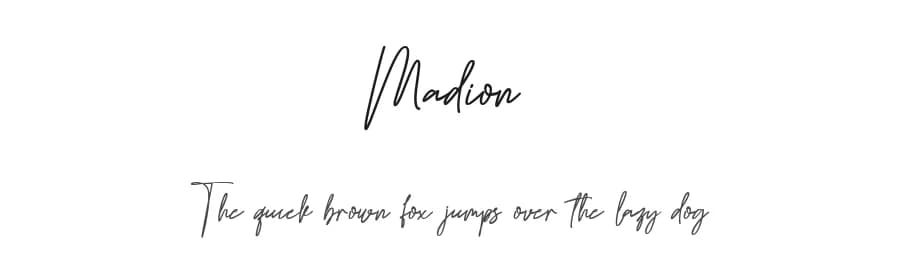 Madion
The quick brown fox jumps over the lazy dog